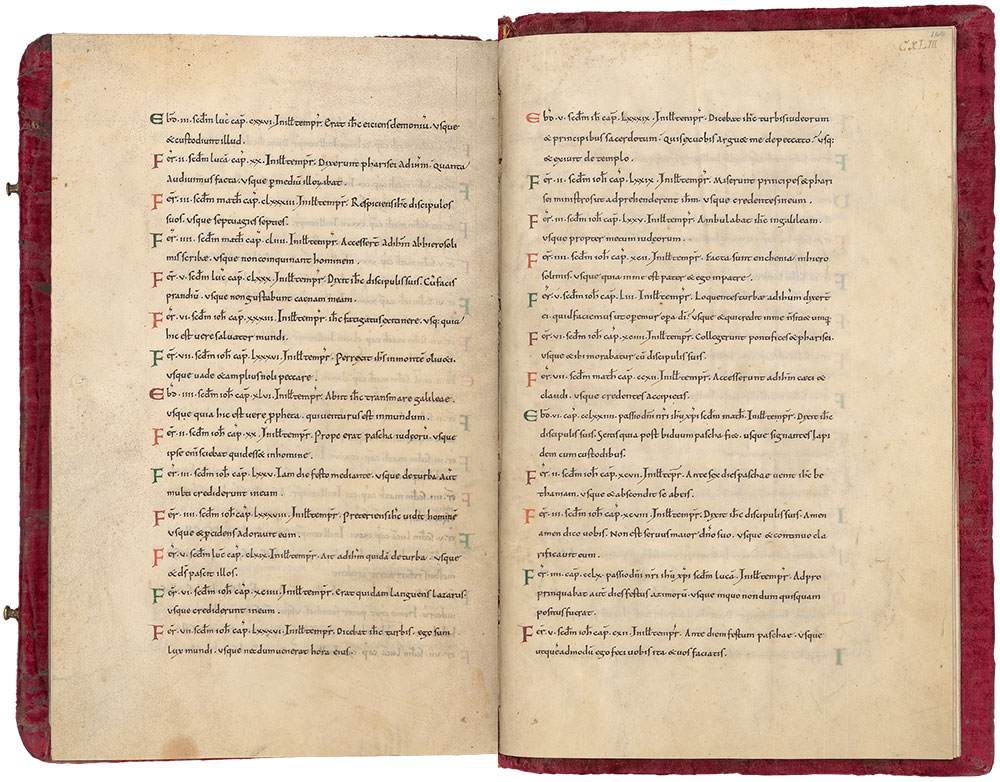 Ebd̄o·III·scd̄m luc̄ cap̄·cxxvi·In ill̄ temp̄r·Erat ihc̄ eiciens demoniū·usque
& custodiunt illud.
Fer̄·II·scd̄m lucā cap̄·xx·In ill̄ temp̄r·Dixerunt pharisei ad ihm̄·quanta
audiuimus facta·usque p̄ mediū illoꝝ ibat·
Fer̄·III·scd̄m math̄ cap̄·clxxxiii·In ill̄ temp̄r·Respiciens ihc̄ discipulos
suos·usque septuagies septies·
Fer̄·IIII·scd̄m math̄ cap̄·cliii·In ill̄ temp̄r·Accesser̄t ad ihm̄ ab hierosoli
mis scribae·usque non coinquinant hominem·
Fer̄·V·scd̄m luc̄ cap̄·clxxx·In ill̄ temp̄r·Dixit ihc̄ discipulis suis·Cū facis
prandiū·usque non gustabunt caenam meam·
Fer̄·VI·scd̄m ioh̄ cap̄·xxxiii·In ill̄ temp̄r·ihc̄ fatigatus ex itinere·usq: quia
hic est uere saluator mundi·
Fer̄·VII·scd̄m ioh̄ cap̄·lxxxvi·In ill̄ temp̄r·Perrexit ihs̄ in monte oliueti·
usque uade & amplius noli peccare·
Ebd̄o·IIII·scd̄m ioh̄ cap̄·xlvi·In ill̄ temp̄r·Abiit ihc̄ trans mare galileae·
usque quia hic est uere ꝓpheta·qui uenturus est in mundum·
Fer̄·II·scd̄m ioh̄ cap̄·xx·In ill̄ temp̄r·Prope erat pascha iudeorū·usque
ipse eni̅ sciebat quid esset in homine·
Fer̄·III·scd̄m ioh̄ cap̄·lxxv·Iam die festo mediante·usque de turba aut̄
multi crediderunt in eum·
Fer̄·IIII·scd̄m ioh̄ cap̄·lxxxviii·In ill̄ temp̄r·Preteriens ihc̄ uidit hominē
usque & procidens adorauit eum·
Fer̄·V·scd̄m luc̄ cap̄·clxix·In ill̄ temp̄r·Ait ad ihm̄ quidā de turba·usque
& ds̄ pascit illos·
Fer̄·VI·scd̄m ioh̄ cap̄·xciiii·In ill̄ temp̄r·Erat quidam languens lazarus·
usque crediderunt in eum·
Fer̄·VII·scd̄m ioh̄ cap̄·lxxxvi·In ill̄ temp̄r·Dicebat ihc̄ turbis·ego sum
lux mundi·usque necdum uenerat hora eius·
CXLIII
Ebd̄o·V·scd̄m ioh̄ cap̄·lxxxix·In ill̄ temp̄r·Dicebat ihc̄ turbis iudeorum
& principibus sacerdotum·quis ex uobis arguet me de peccato·usq:
& exiuit de templo·
Fer̄·II·scd̄m ioh̄ cap̄·lxxix·In ill̄ temp̄r·Miserunt principes & phari
sei ministros ut adprehenderent ihm̄·usque credentes in eum·
Fer̄·III·scd̄m ioh̄ cap̄·lxxv·In ill̄ temp̄r·Ambulabat ihc̄ in galileam·
usque propter metum iudeorum·
Fer̄·IIII·scd̄m ioh̄ cap̄·xci·In ill̄ temp̄r·Facta sunt enchenia in hiero
solimis·usque quia in me est pater & ego in patre·
Fer̄·V·scd̄m ioh̄ cap̄·liii·In ill̄ temp̄r·Loquente turbae ad ihm̄ dixer̄t
ei·quid faciemus ut operemur opa di̅·usque & qui credit in me
Fer̄·VI·scd̄m ioh̄ cap̄·xcviiii·In ill̄ temp̄r·Collegerunt pontifices & pharisei·
usque & ibi morabatur cū discipulis suis·
Fer̄·VII·scd̄m math̄ cap̄·ccxii·In ill̄ temp̄r·Accesserunt ad ihm̄ caeci &
claudi·usque credentes accipietis·
Ebd̄o·VI·cap̄·cclxxiiii·passio dn̄i nr̄i ihū xp̄i scd̄m math̄·In ill̄ temp̄r·Dixit ihc̄
discipulis suis·Scitis quia post biduum pascha fiet·usque signantes lapi
dem cum custodibus·
Fer̄·II·scd̄m ioh̄ cap̄·xcvii·In ill̄ temp̄r·Ante sex dies paschae uenit ihc̄ be
thaniam·usque & abscondit se ab eis·
Fer̄·III·scd̄m ioh̄ cap̄·xcviii·In ill̄ temp̄r·Dixit ihc̄ discipulis suis·Amen
amen dico uobis·Non est seruus maior dn̄o suo·usque & continuo cla
rificauit eum·
Fer̄·IIII·cap̄·cclx·passio dn̄i nr̄i ihū xp̄i scd̄m lucā·In ill̄ temp̄r·Adpro
pinquabat aut̄ dies festus azimorū·usque in quo nondum quisquam
positus fuerat·
Fer̄·V·scd̄m ioh̄ cap̄·cxii·In ill̄ temp̄r·Ante diem festum paschae·usque
ut quēadmodū ego feci uobis ita & uos faciatis·